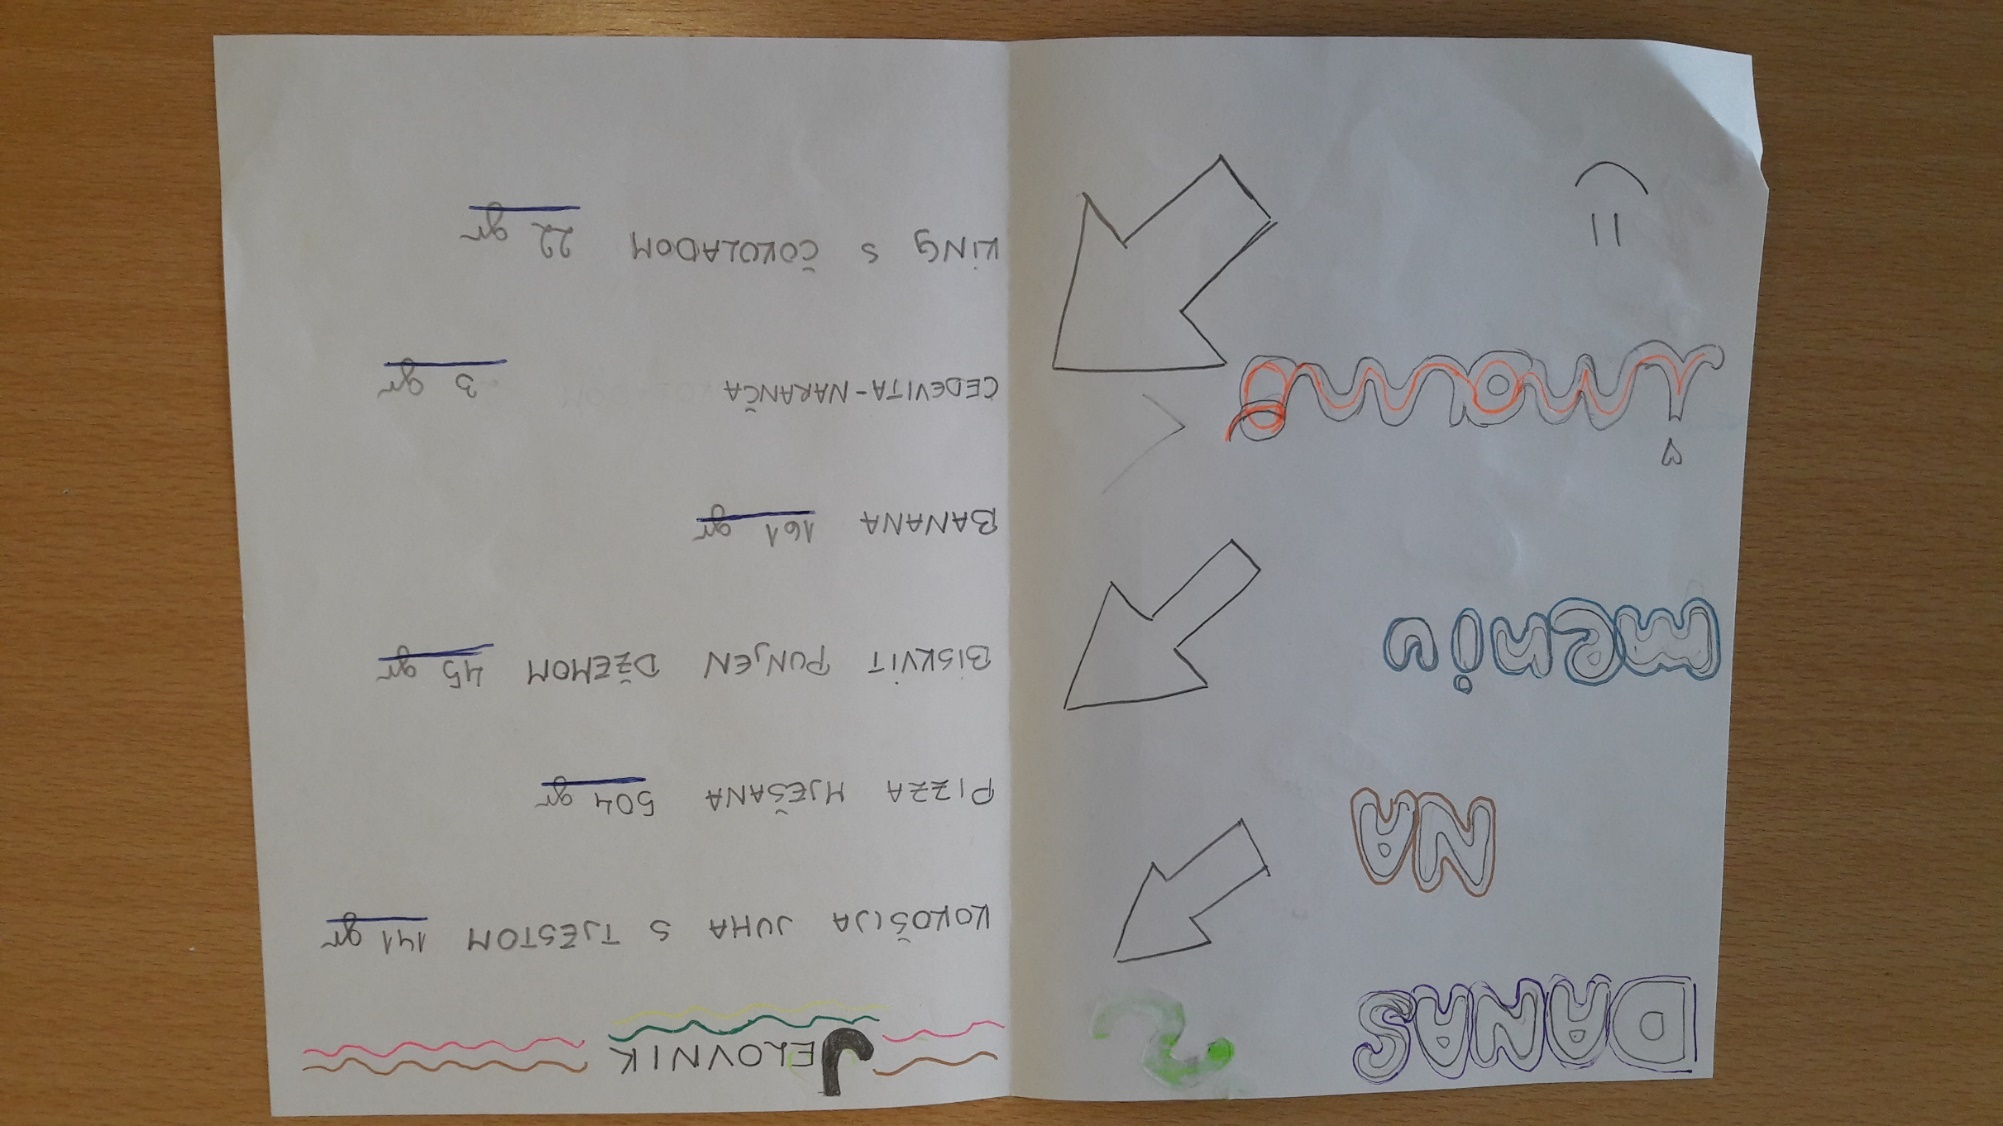 DANAS
NA
meniu
imamo:
JELOVNIK
KOKOŠIJA JUHA S TJESTOM 141 gr
PIZZA MJEŠANA 504 gr
BISKVIT PUNJEN DŽEMOM 45 gr
BANANA 161 gr
CEDEVITA-NARANČA 3 gr
KING S ČOKOLADOM 22 gr